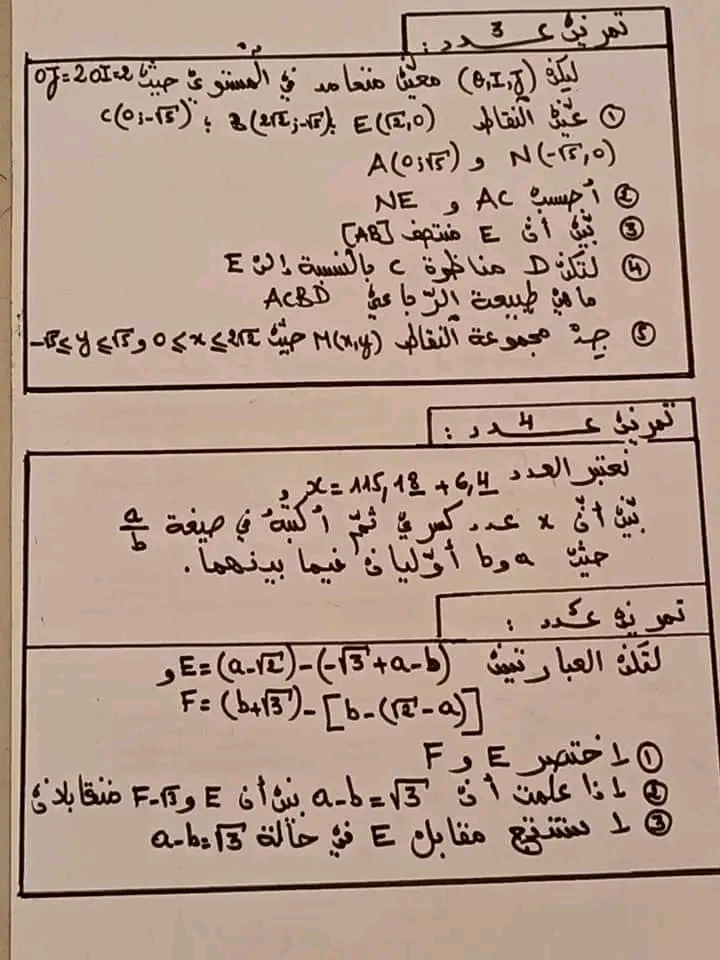 تمرين عـــ3ـــدد :
ليكن (O,I,J) معيّن متعامد في المستوى حيث OJ=2OI=2
① عيّن النقاط E(√2,0) ; B(2√2;-√5) ; C(0;-√5)
N(-√5,0) و A(0;√5)
② أحسب AC و NE
③ بيّن أن E منتصف [AB]
④ لتكن D مناظرة C بالنسبة إلى E
ما هي طبيعة الرباعي ACBD
⑤ جد مجموعة النقاط M(x,y) حيث 0≤x≤2√2 و -√5≤y≤√5
تمرين عـــ4ـــدد :
نعتبر العدد x = 115,18 + 6,4
بيّن أنّ x عدد كسري ثمّ أكتبه في صيغة a/b
حيث a و b أوليان فيما بينهما .
تمرين عـدد :
لتكن العبارتين E=(a-√2)-(-√3+a-b) و
F=(b+√3)-[b-(√2-a)]
① اختصر E و F
② إذا علمت أن a-b=√3 بيّن أن E و F-√3 متقابلان
③ استنتج مقابل E في حالة a-b=√3